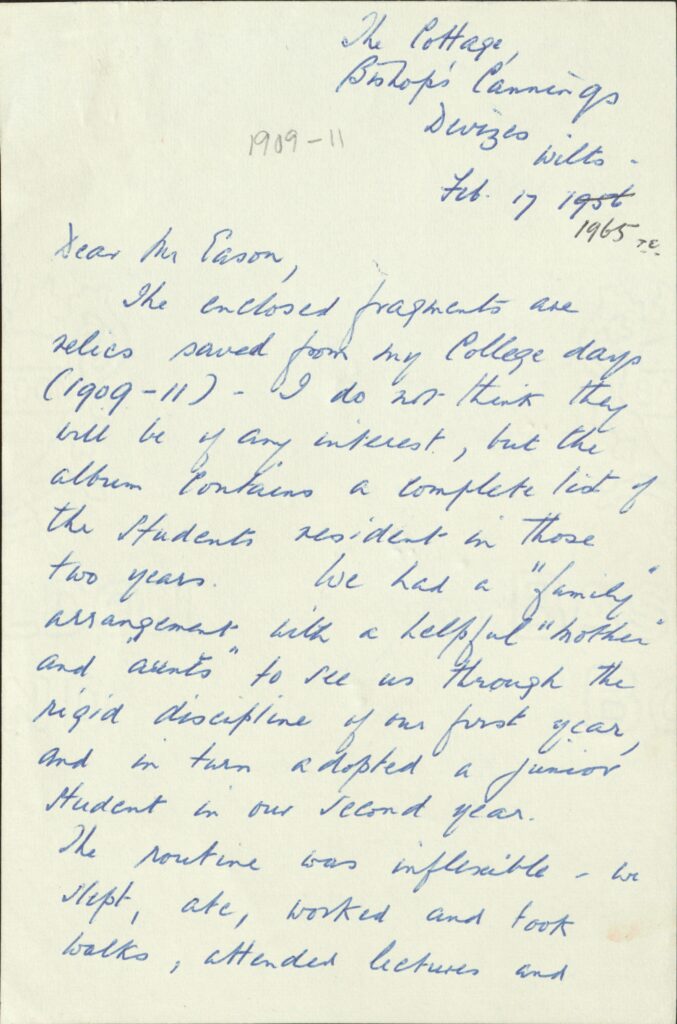 The Cottage,
Bishop's Cannings
Devizes
Wilts -
1909-11
Feb. 17 1956
1965 T.E.
Dear Mr Eason,
The enclosed fragments are
relics saved from my College days
(1909-11) - I do not think they
will be of any interest, but the
album contains a complete list of
the Students resident in those
two years. We had a "family"
arrangement with a helpful "mother"
and "aunts" to see us through the
rigid discipline of our first year,
and in turn adopted a junior
Student in our second year.
The routine was inflexible - we
slept, ate, worked and took
walks, attended lectures and